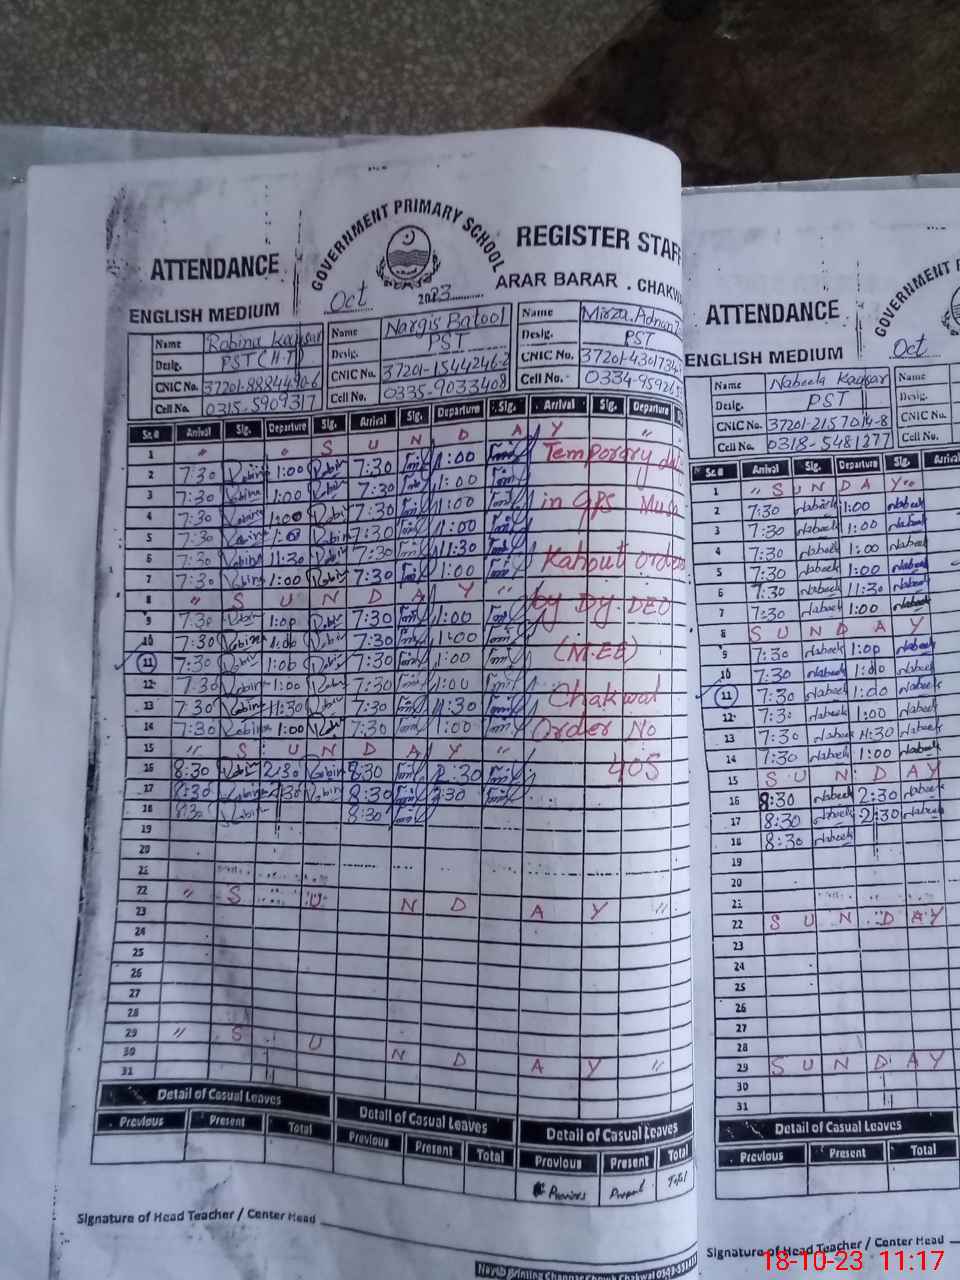 GOVERNMENT PRIMARY SCHOOL
ATTENDANCE
REGISTER STAFF
ARAR BARAR . CHAKWA
ENGLISH MEDIUM
Oct 2023
Name Robina Kausar Name Nargis Batool Name Mirza. Adnan
Desig. PST (H.T) Desig. PST Desig. PST
CNIC No. 37201-8884490-6 CNIC No. 37201-1544246-2 CNIC No. 37201-4301734
Cell No. 0315-5909317 Cell No. 0335-9033408 Cell No. 0334-9592
Sr.# Arrival Sig. Departure Sig. Arrival Sig. Departure Sig. Arrival Sig. Departure
1 " S U N D A Y "
2 7:30 Robina 1:00 Robina 7:30 1:00 Temporary
3 7:30 Robina 1:00 Robina 7:30 1:00
4 7:30 Robina 1:00 Robina 7:30 1:00 in GPS
5 7:30 Robina 1:00 Robina 7:30 1:00
6 7:30 Robina 11:30 Robina 7:30 11:30 Kahout orders
7 7:30 Robina 1:00 Robina 7:30 1:00
8 " S U N D A Y " by DY. DEO
9 7:30 Robina 1:00 Robina 7:30 1:00
10 7:30 Robina 1:00 Robina 7:30 1:00 (M.EE)
11 7:30 Robina 1:00 Robina 7:30 1:00
12 7:30 Robina 1:00 Robina 7:30 1:00 Chakwal
13 7:30 Robina 11:30 Robina 7:30 11:30
14 7:30 Robina 1:00 Robina 7:30 1:00 Order No
15 " S U N D A Y "
16 8:30 Robina 2:30 Robina 8:30 2:30 405
17 8:30 Robina 2:30 Robina 8:30 2:30
18 8:30 Robina 8:30
19
20
21
22 " S U N D A Y "
23
24
25
26
27
28
29 " S U N D A Y "
30
31
Detail of Casual Leaves Detail of Casual Leaves Detail of Casual Leaves
Previous Present Total Previous Present Total Previous Present Total
Previous Present Total
Signature of Head Teacher / Center Head
Chakwal
GOVERNMENT
ATTENDANCE
ENGLISH MEDIUM
Oct
Name Nabeela Kausar Name
Desig. PST Desig.
CNIC No. 37201-2157014-8 CNIC
Cell No. 0318-5481277 Cell No.
Sr.# Arrival Sig. Departure Sig.
1 " S U N D A Y "
2 7:30 Nabeela 1:00 Nabeela
3 7:30 Nabeela 1:00 Nabeela
4 7:30 Nabeela 1:00 Nabeela
5 7:30 Nabeela 1:00 Nabeela
6 7:30 Nabeela 11:30 Nabeela
7 7:30 Nabeela 1:00 Nabeela
8 S U N D A Y
9 7:30 Nabeela 1:00 Nabeela
10 7:30 Nabeela 1:00 Nabeela
11 7:30 Nabeela 1:00 Nabeela
12 Nabeela 1:00 Nabeela
13 7:30 Nabeela 11:30 Nabeela
14 7:30 Nabeela 1:00 Nabeela
15 S U N D A Y
16 8:30 Nabeela 2:30 Nabeela
17 8:30 Nabeela 2:30 Nabeela
18 8:30 Nabeela
19
20
21
22 S U N D A Y
23
24
25
26
27
28
29 S U N D A Y
30
31
Detail of Casual Leaves
Previous Present Total
Signature of Head Teacher / Center Head
18-10-23 11:17